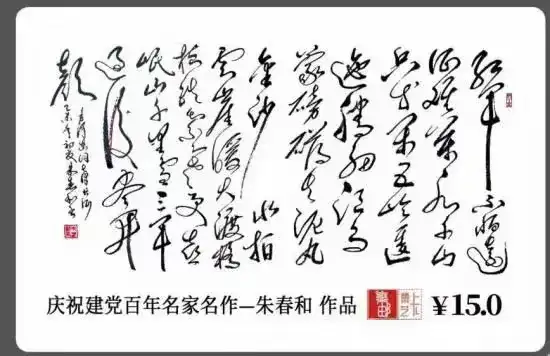 红军不怕远
征难万水千山
只等闲五岭逶
迤腾细浪乌
蒙磅礴走泥丸
金沙水拍
云崖暖大渡桥
横铁索寒更喜
岷山千里雪三军
过后尽开
颜
庆祝建党百年名家名作—朱春和 作品 ¥15.0